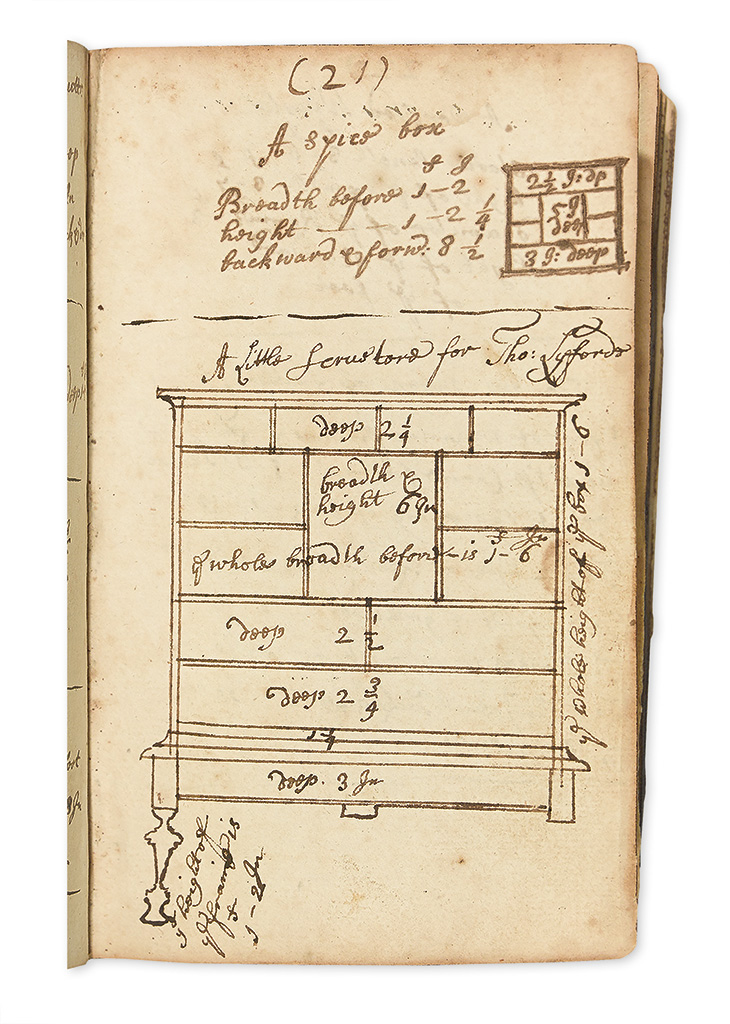 (21)
A spice box
f J
Breadth before 1-2
height — — 1-2 1/4
backward & forw: 8 1/2
2 1/2 J: dp
5 J
deep
3 J: deep
A Little scrustore for Tho: Lyfords
deep 2 1/4
breadth &
height 6 Jn
f Jn
ye whole breadth before - is 1-6
deep 2 1/2
deep 2 3/4
1 1/4
deep. 3 Jn
ye whole height of ye box 1-6
ye height of
ye frame is
f
1-2 Jn